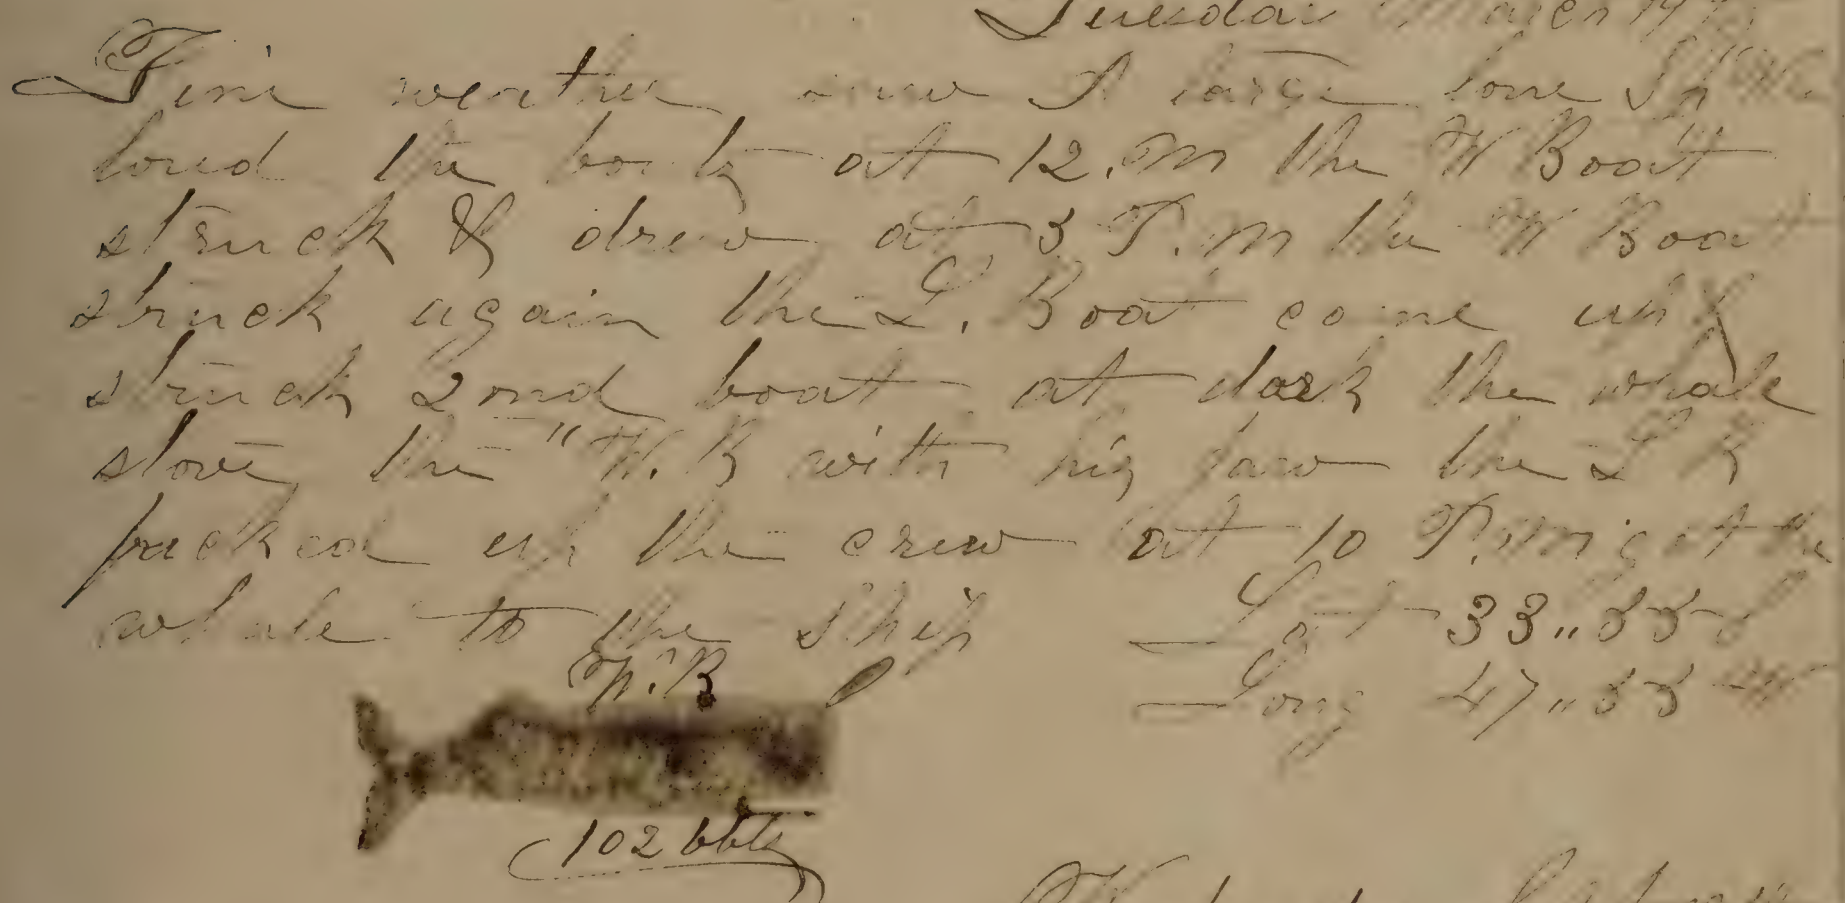 Tuesday March 19th
Fine weather saw A large lone Sp Wh
lowd the boats at 12. M the W Boat
struck & drew at 3 P.M the W Boat
struck again the L. Boat come up &
struck 2nd boat at dark the whale
stove the "W. B with his jaw the L B
picked up the crew at 10 P.M got the
whale to the Ship Lat 33,,55 S
W.B Long 47,,55 W
102 bbls